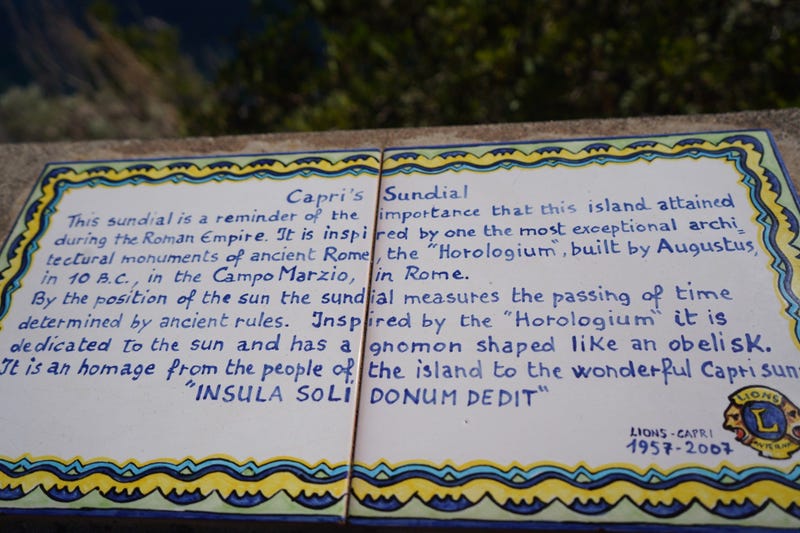 Capri's Sundial
This sundial is a reminder of the importance that this island attained
during the Roman Empire. It is inspired by one the most exceptional archi=
tectural monuments of ancient Rome, the "Horologium", built by Augustus,
in 10 B.C., in the Campo Marzio, in Rome.
By the position of the sun the sundial measures the passing of time
determined by ancient rules. Inspired by the "Horologium" it is
dedicated to the sun and has a gnomon shaped like an obelisk.
It is an homage from the people of the island to the wonderful Capri sun
"INSULA SOLI DONUM DEDIT"
LIONS-CAPRI
1957-2007
LIONS
L